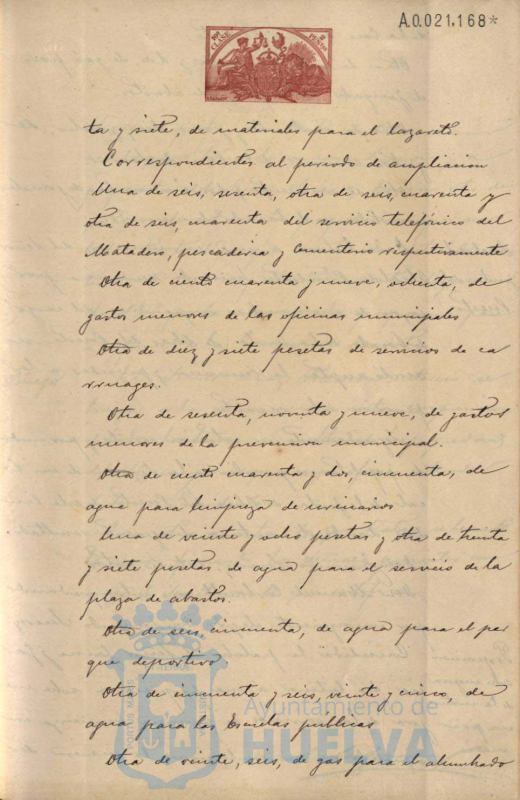 A.0.021.168*
10ª CLASE 2 PESETAS
ta y siete, de materiales para el lazareto.
Correspondientes al periodo de ampliacion
Una de seis, sesenta, otra de seis, cuarenta y
otra de seis, cuarenta del servicio telefónico del
Matadero, pescaderia y Cementerio respectivamente
Otra de ciento cuarenta y nueve, ochenta, de
gastos menores de las oficinas municipales
Otra de diez y siete pesetas de servicios de ca
rruages.
Otra de sesenta, noventa y nueve, de gastos
menores de la prevencion municipal.
Otra de ciento cuarenta y dos, cincuenta, de
agua para limpieza de urinarios
Una de veinte y ocho pesetas y otra de treinta
y siete pesetas de agua para el servicio de la
plaza de abastos.
Otra de seis, cincuenta, de agua para el par
que deportivo
Otra de cincuenta y seis, veinte y cinco, de
agua para las Escuelas publicas
Otra de veinte, seis, de gas para el alumbrado
Ayuntamiento de
HUELVA